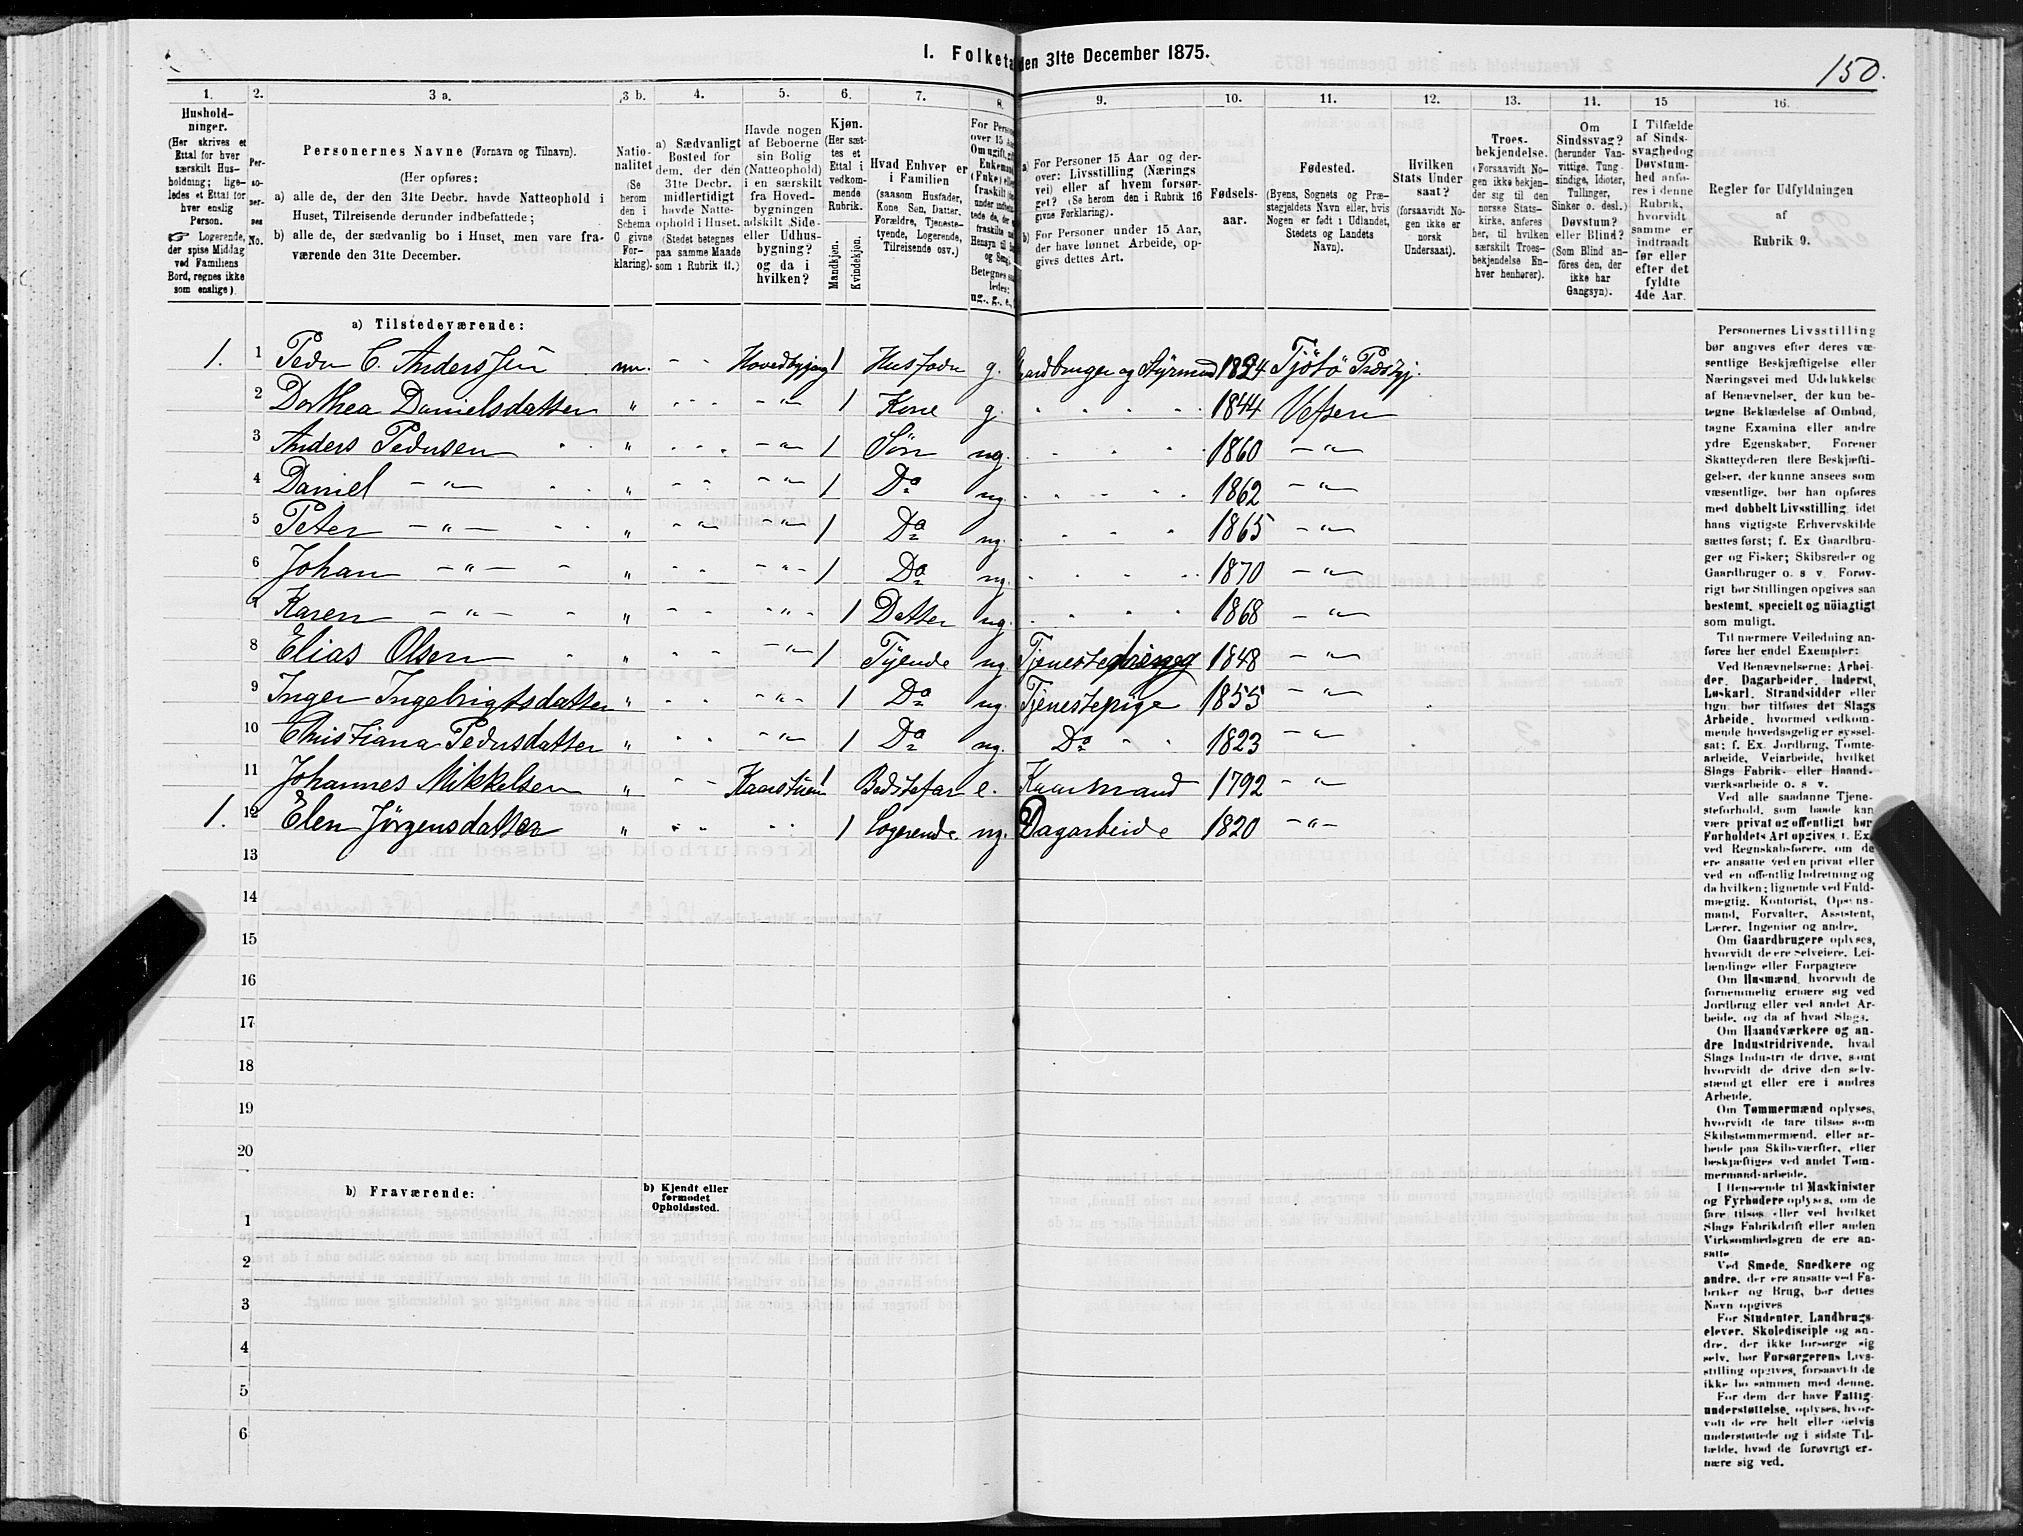 I. Folketa den 31te December 1875.
150.
1. 2. 3 a. 3 b. 4. 5. 6. 7. 8. 9. 10. 11. 12. 13. 14. 15 16.
Hushold-
ninger.
(Her skrives et
Ettal for hver
særskilt Hus-
holdning; lige-
ledes et Ettal for
hver enslig
Person.
☞ Logerende,
der spise Middag
ved Familiens
Bord, regnes ikke
som enslige).
Per-
so-
ner-
nes
No.
Personernes Navne (Fornavn og Tilnavn).
(Her opføres:
a) alle de, der den 31te Decbr. havde Natteophold i
Huset, Tilreisende derunder indbefattede;
b) alle de, der sædvanlig bo i Huset, men vare fra-
værende den 31te December.
Natio-
nalitet
(Se
herom
den i
Schema
C givne
For-
klaring).
a) Sædvanligt
Bosted for
dem, der den
31te Decbr.
midlertidigt
havde Natte-
ophold i Huset.
(Stedet betegnes
paa samme Maade
som i Rubrik 11.)
Havde nogen
af Beboerne
sin Bolig
(Natteophold)
i en særskilt
fra Hoved-
bygningen
adskilt Side-
eller Udhus-
bygning?
og da i
hvilken?
Kjøn.
(Her sæt-
tes et
Ettal i
vedkom-
mende
Rubrik.
Mandkjøn.
Kvindekjøn.
Hvad Enhver er
i Familien
(saasom Husfader,
Kone, Søn, Datter,
Forældre, Tjeneste-
tyende, Logerende,
Tilreisende osv.)
For Perso
over 15 Aar
Om ugift, gif
Enkemand
(Enke) eller
fraskilt
Betegnes saa
ledes:
ug., g., e.,
a) For Personer 15 Aar og der-
over: Livsstilling (Nærings
vei) eller af hvem forsør-
get? (Se herom den i Rubrik 16
givne Forklaring).
b) For Personer under 15 Aar,
der have lønnet Arbeide, op-
gives dettes Art.
Fødsels-
aar.
Fødested.
(Byens, Sognets og Præ-
stegjeldets Navn eller, hvis
Nogen er født i Udlandet,
Stedets og Landets
Navn).
Hvilken
Stats Under
saat?
(forsaavidt No-
gen ikke er
norsk
Undersaat).
Troes-
bekjendelse.
(Forsaavidt No-
gen ikke bekjen-
der sig til den
norske Stats-
kirke, anføres
her, til hvilken
særskilt Troes-
bekjendelse En-
hver henhører).
Om
Sindssvag?
(herunder Van-
vittige, Tung-
sindige, Idioter,
Tullinger,
Sinker o. desl.)
Døvstum?
eller Blind?
(Som Blind an-
føres den, der
ikke har
Gangsyn).
I Tilfælde
af Sinds-
svaghed og
Døvstum-
hed anfø-
res i denne
Rubrik,
hvorvidt
samme er
indtraadt
før eller
efter det
fyldte
4de Aar.
Regler for Udfyldningen
af
Rubrik 9.
a) Tilstedeværende:
1. 1 Peder C. Anderssen nn. - - Hovedbygng 1 Husfader g. Gaardbruger og Styrmand 1824 Tjötö Præstgj.
2 Dorthea Danielsdatter " - - - " - 1 Kone g. 1844 Vefsen
3 Anders Pedersen " - - - " - 1 Søn ug. 1860 - " -
4 Daniel - " - " - - - " - 1 Do ug. 1862 - " -
5 Peter - " - " - - - " - 1 Do ug. 1865 - " -
6 Johan - " - " - - - " - 1 Do ug. 1870 - " -
7 Karen - " - " - - - " - 1 Datter ug. 1868 - " -
8 Elias Olsen " - - - " - 1 Tyende ug. Tjenestedreng 1848 - " -
9 Inger Ingebrigtsdatter " - - - " - 1 Do ug. Tjenestepige 1855 - " -
10 Christiana Pedersdatter " - - - " - 1 Do ug. Do 1823 - " -
11 Johannes Mikkelsen " - - Kaarstuen 1 Bedstefar e. Kaarmand 1792 - " -
1. 12 Elen Jørgensdatter " - - 1 Logerende ug. Dagarbeide 1820 - " -
13
14
15
16
17
18
19
20
b) Fraværende:
b) Kjendt eller
formodet
Opholdssted.
1
2
3
4
5
6
Personernes Livsstilling
bør angives efter deres væ-
sentlige Beskjæftigelse eller
Næringsvei med Udelukkelse
af Benævnelser, der kun be-
tegne Beklædelse af Ombud,
tagne Examina eller andre
ydre Egenskaber. Forener
Skatteyderen flere Beskjæfti-
gelser, der kunne ansees som
væsentlige, bør han opføres
med dobbelt Livsstilling, idet
hans vigtigste Erhvervskilde
sættes først; f. Ex Gaardbru-
ger og Fisker; Skibsreder og
Gaardbruger o. s v. Forøv-
rigt bør Stillingen opgives saa
bestemt, specielt og nöiagtigt
som muligt.
Til nærmere Veiledning an-
føres her endel Exempler:
Ved Benævnelserne: Arbei-
der, Dagarbeider, Inderst,
Løskarl, Strandsidder eller
lign. bør tilføies det Slags
Arbeide, hvormed vedkom-
mende hovedsagelig er syssel-
sat; f. Ex. Jordbrug, Tomte-
arbeide, Veiarbeide, hvilket
Slags Fabrik- eller Haand-
værksarbeide o. s. v.
Ved alle saadanne Tjene-
steforhold, som baade kan
være privat og offentligt bør
Forholdets Art opgives, t. Ex.
ved Regnskabsførere, om de
ere ansatte ved en privat eller
ved en offentlig Indretning og
da hvilken; lignende ved Fuld-
mægtig, Kontorist, Opsyns-
mand, Forvalter, Assistent,
Lærer, Ingeniør og andre.
Om Gaardbrugere oplyses,
hvorvidt de ere Selveiere, Lei-
lændinge eller Forpagtere
Om Husmænd, hvorvidt de
fornemmelig ernære sig ved
Jordbrug eller ved andet Ar-
beide, og da af hvad Slags.
Om Haandværkere og an-
dre Industridrivende, hvad
Slags Industri de drive, samt
hvorvidt de drive den selv-
stændigt eller ere i andres
Arbeide.
Om Tømmermænd oplyses,
hvorvidt de fare tilsøs som
Skibstømmermænd, eller ar-
beide paa Skibsværfter, eller
beskjæftiges ved andet Tøm-
mermandsarbeide.
I Henseende til Maskinister
og Fyrbødere oplyses, om de
fare tilsøs eller ved hvilket
Slags Fabrikdrift eller anden
Virksomhedsgren de ere an-
satte
Ved Smede, Snedkere og
andre, der ere ansatte ved Fa-
briker og Brug, bør dettes
Navn opgives
For Studenter, Landbrugs-
elever, Skoledisciple og an-
dre, der ikke forsørge sig
selv, bør Forsørgerens Livs-
stilling opgives, forsaavidt de
ikke bo sammen med denne.
For dem, der have Fattig-
understøttelse, oplyses, hvor-
vidt de ere helt eller delvis
understøttede og i sidste Til-
fælde, hvad de forøvrigt er-
nære sig ved.